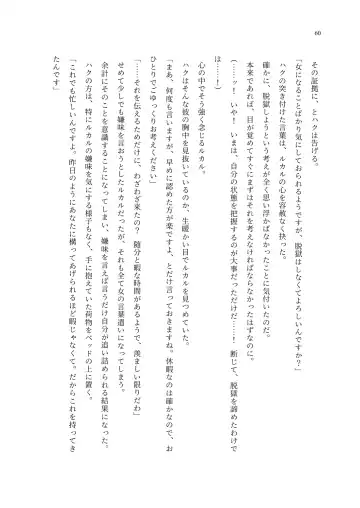 60
その証拠に、とハクは告げる。
「女になることばかり気にしておられるようですが、脱獄はしなくてよろしいんですか？」
ハクの突き付けた言葉は、ルカルの心を容赦なく抉った。
確かに、脱獄しようという考えが全く思い浮かばなかったことに気付いたのだ。
本来であれば、改めてすぐにまずはそれを考えなければならなかったはずなのに。
（……っ！　いや！　いまは、自分の状態を把握するのが大事だっただけだ……！　断じて、脱獄を諦めたわけで
は……！）
心の中でそう強く念じるルカル。
ハクはそんな彼の胸中を見抜いているのか、生暖かい目でルカルを見つめていた。
「まあ、何度も言いますが、早めに認めた方が楽ですよ、とだけ言っておきますね。休暇なのは確かなので、お
ひとりでごゆっくりお考えください」
「……それを伝えるためだけに、わざわざ来たの？　随分と暇な時間があるようで、羨ましい限りだわ」
せめて少しでも嫌味を言おうとしたルカルだったが、それも全て女の言葉遣いになってしまう。
余計にそのことを意識することになってしまい、嫌味を言えば言うだけ自分が追い詰められる結果になった。
ハクは、特にルカルの嫌味を気にする様子もなく、手に抱えていた荷物をベッドの上に置く。
「これでも忙しいんですよ。昨日のようにあなたに構ってあげられるほど暇じゃなくて。だからこれを持ってき
たんです」